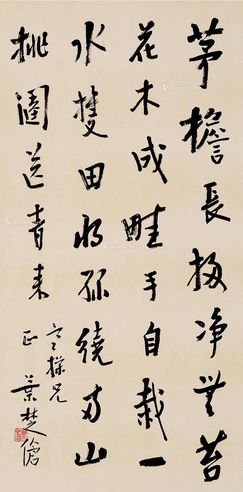 茅檐長掃净無苔
花木成畦手自栽一
水護田將綠繞兩山
排闥送青来
操兄
正
葉楚傖